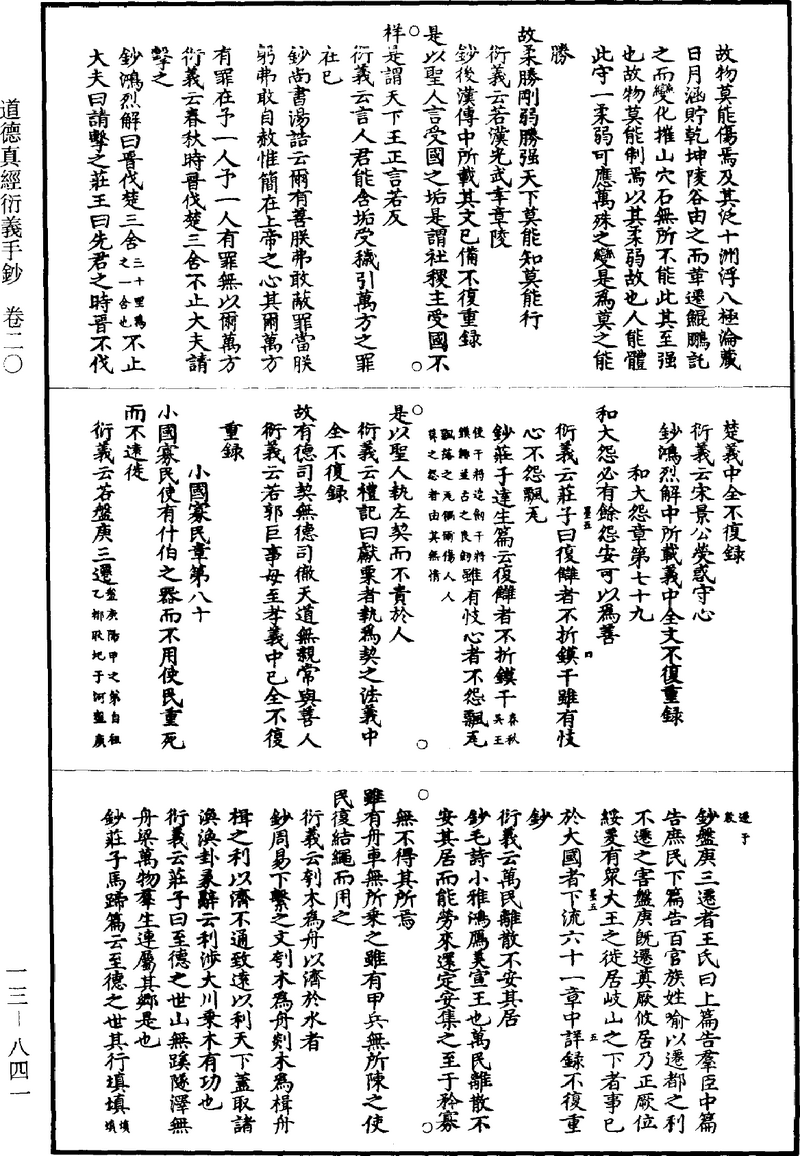 道德真經衍義手鈔　卷二〇
一三—八四一
故物莫能傷焉及其泛十洲浮八極淪藏
日月涵貯乾坤陵谷由之而革遷鯤鵬託
之而變化摧山穴石無所不能此其至强
也故物莫能制焉以其柔弱故也人能體
此守一柔弱可應萬殊之變是爲莫之能
勝
故柔勝剛弱勝强天下莫能知莫能行
衍義云若漢光武幸章陵
鈔後漢傳中所載其文已備不復重録
是以聖人言受國之垢是謂社稷主受國不
祥是謂天下王正言若反
衍義云言人君能含垢受穢引萬方之罪
社已
鈔尚書湯誥云爾有善朕弗敢蔽罪當朕
躬弗敢自赦惟簡在上帝之心其爾萬方
有罪在予一人予一人有罪無以爾萬方
衍義云春秋時晉伐楚三舍不止大夫請
擊之
鈔鴻烈解曰晉伐楚三舍三十里爲之一舍也不止
大夫曰請擊之莊王曰先君之時晉不伐
楚義中全不復録
衍義云宋景公熒惑守心
鈔鴻烈解中所載義中全文不復重録
和大怨章第七十九
和大怨必有餘怨安可以爲善
衍義云莊子曰復讎者不折鏌干雖有忮
心不怨飄瓦
鈔莊子達生篇云復讎者不折鏌干春秋吳王
使干將造劍干將鏌鎁並古之良劍雖有忮心者不怨飄瓦
飄落之瓦偶爾傷人人莫之怨者由其無情
是以聖人執左契而不責於人
衍義云禮記曰獻粟者執爲契之法義中
全不復録
故有德司契無德司徹天道無親常與善人
衍義云若郭巨事母至孝義中已全不復
重録
小國寡民章第八十
小國寡民使有什伯之器而不用使民重死
而不遠徙
衍義云若盤庚三遷盤庚陽甲之弟自祖乙都耿圮于河盤庚
遷于殷
鈔盤庚三遷者王氏曰上篇告羣臣中篇
告庶民下篇告百官族姓喻以遷都之利
不遷之害盤庚既遷奠厥攸居乃正厥位
綏爰有衆大王之徙居岐山之下者事已
於大國者下流六十一章中詳録不復重
鈔
衍義云萬民離散不安其居
鈔毛詩小雅鴻鴈美宣王也萬民離散不
安其居而能勞來還定安集之至于矜寡
無不得其所焉
雖有舟車無所乘之雖有甲兵無所陳之使
民復結繩而用之
衍義云刳木爲舟以濟於水者
鈔周易下繫之文刳木爲舟剡木爲楫舟
楫之利以濟不通致遠以利天下蓋取諸
渙渙卦彖辭云利涉大川乘木有功也
衍義云莊子曰至德之世山無蹊隧澤無
舟梁萬物羣生連屬其鄉是也
鈔莊子馬蹄篇云至德之世其行填填填填